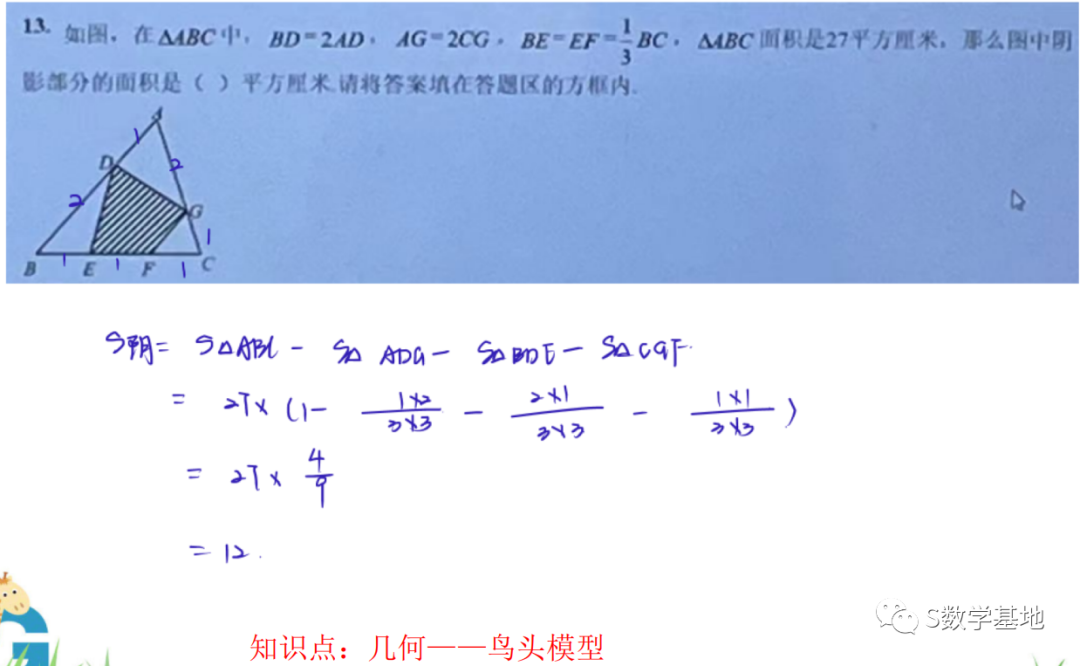 13. 如图，在ΔABC中，BD=2AD，AG=2CG，BE=EF=1/3BC，ΔABC面积是27平方厘米，那么图中阴
影部分的面积是（ ）平方厘米.请将答案填在答题区的方框内.
A
1
D
2
2
G
1
B 1 E 1 F 1 C
S阴= SΔABC - SΔADG - SΔBDE - SΔCGF.
= 27×(1 - 1×2/3×3 - 2×1/3×3 - 1×1/3×3)
= 27× 4/9
= 12.
S数学基地
知识点：几何——鸟头模型